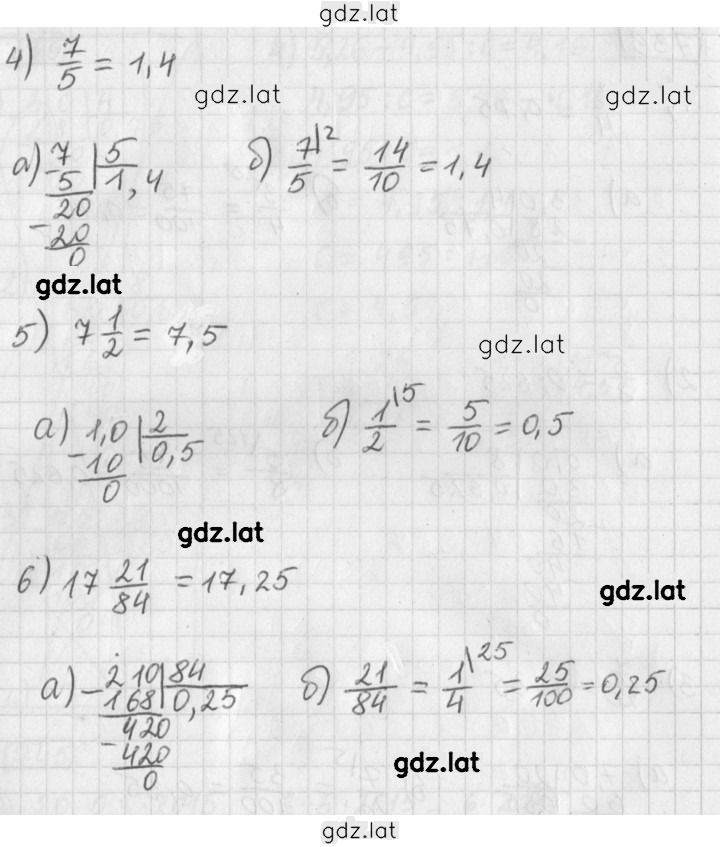 gdz.lat
4) 7/5 = 1,4
gdz.lat gdz.lat
а) 7 | 5 б) 7/5 |2 = 14/10 = 1,4
5 | 1,4
20
- 20
0
gdz.lat
5) 7 1/2 = 7,5
gdz.lat
а) 1,0 | 2 б) 1/2 \5 = 5/10 = 0,5
- 10 | 0,5
0
gdz.lat
6) 17 21/84 = 17,25
gdz.lat
а) - 210 | 84 б) 21/84 = 1/4 \25 = 25/100 = 0,25
168 | 0,25
420
- 420
0
gdz.lat
gdz.lat